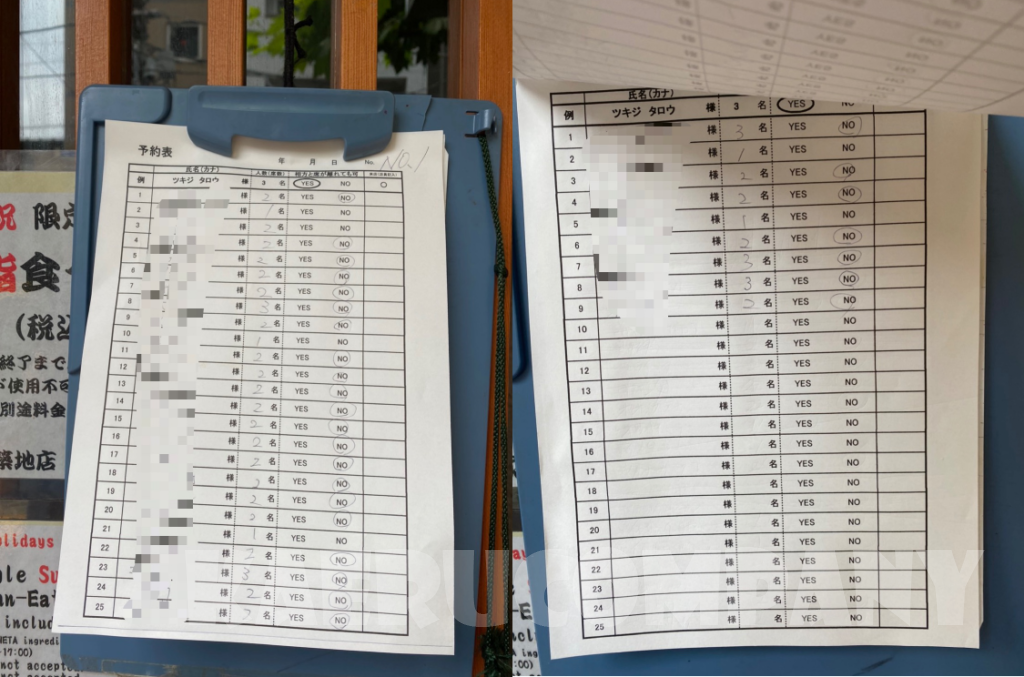 限定
食
(税込
終了まで
使用不可
別途料金
築地店
olidays
gle Su
an-Eat
includ
NETA ingredi
-17:00)
not accepted
not accepted
予約表
年 月 日 No. NO.1
氏名(カナ)
例 ツキジ タロウ 様 3 名 YES NO ○
1 様 2 名 YES NO
2 様 1 名 YES NO
3 様 2 名 YES NO
4 様 2 名 YES NO
5 様 2 名 YES NO
6 様 2 名 YES NO
7 様 2 名 YES NO
8 様 3 名 YES NO
9 様 2 名 YES NO
10 様 1 名 YES NO
11 様 2 名 YES NO
12 様 2 名 YES NO
13 様 2 名 YES NO
14 様 2 名 YES NO
15 様 2 名 YES NO
16 様 2 名 YES NO
17 様 2 名 YES NO
18 様 名 YES NO
19 様 2 名 YES NO
20 様 2 名 YES NO
21 様 1 名 YES NO
22 様 2 名 YES NO
23 様 3 名 YES NO
24 様 2 名 YES NO
25 様 名 YES NO
氏名(カナ)
例 ツキジ タロウ 様 3 名 YES NO
1 様 3 名 YES NO
2 様 1 名 YES NO
3 様 2 名 YES NO
4 様 2 名 YES NO
5 様 1 名 YES NO
6 様 2 名 YES NO
7 様 3 名 YES NO
8 様 3 名 YES NO
9 様 2 名 YES NO
10 様 名 YES NO
11 様 名 YES NO
12 様 名 YES NO
13 様 名 YES NO
14 様 名 YES NO
15 様 名 YES NO
16 様 名 YES NO
17 様 名 YES NO
18 様 名 YES NO
19 様 名 YES NO
20 様 名 YES NO
21 様 名 YES NO
22 様 名 YES NO
23 様 名 YES NO
24 様 名 YES NO
25 様 名 YES NO